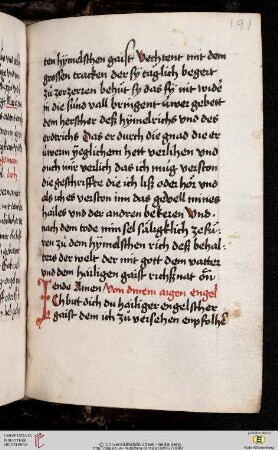 191
ten hÿmelschen gaist Vechtent mit dem
grossen tracken der sÿ täglich begert
zů zerzerren behůt sÿ das sÿ nit wider
in die sünd vall bringent üwer gebett
dem herscher deß hÿmelrichs vnd des
erdtrichs Das er durch die gnad die er
üwerm yeglichem hett verlihen vnd
ouch mir verlich das ich mug verston
die geschrifften die ich liß oder hör vnd
als ich es verston inn das gevell mines
hailes vnd der andren bekeren Vnd
nach dem tode min sel säligklich zefü-
ren zů dem hÿmelschen rich deß behal-
ters der welt der mit gott dem vatter
vnd dem hailigen gaist richßnat on
ende Amen Von dinem aigen engel
Ich butt dich du hailiger engelscher
gaist dem ich zů versehen enpfolhen
UNIVERSITÄTS-
BIBLIOTHEK
HEIDELBERG
© Universitätsbibliothek Heidelberg